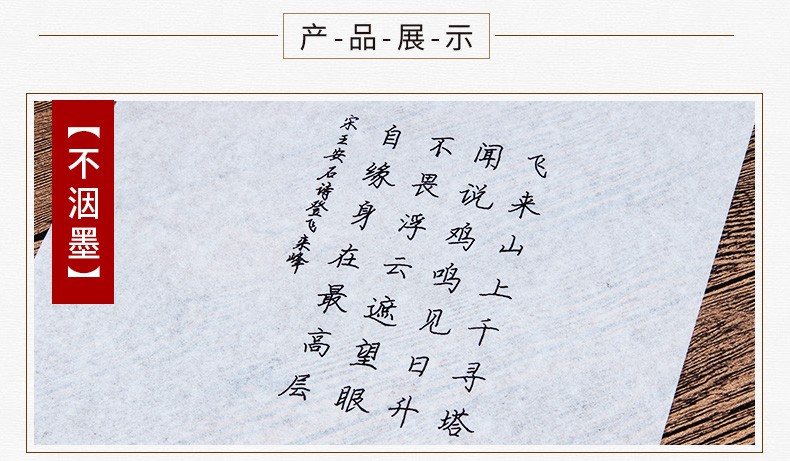 产-品-展-示
【不洇墨】
飞来山上千寻塔
闻说鸡鸣见日升
不畏浮云遮望眼
自缘身在最高层
宋王安石诗登飞来峰